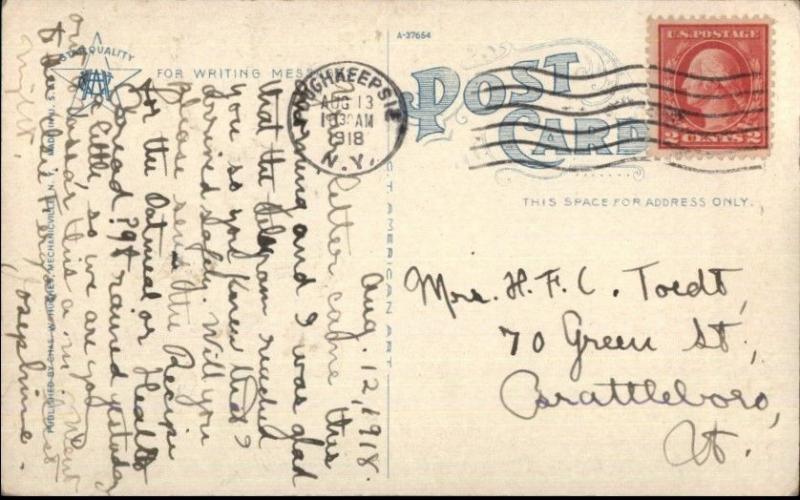 A-37664
POST CARD
FOR WRITING MESS
THIS SPACE FOR ADDRESS ONLY.
POUGHKEEPSIE
AUG 13
1030 AM
1918
N.Y.
U.S. POSTAGE
2 CENTS 2
QUALITY
ST AMERICAN ART
PUBLISHED BY CHAS. W. HUGHES, MECHANICVILLE, N.Y.
Aug. 12, 1918.
letter came this
morning and I was glad
that the telegram reached
you so you knew that I
arrived safely. Will you
please send the Recipe
for the Oatmeal or Health
Bread? It rained yesterday
a little, so we are
this a.m. Went
to
Josephine.
Mrs. H. F. C. Toedt,
70 Green St.,
Brattleboro,
Vt.